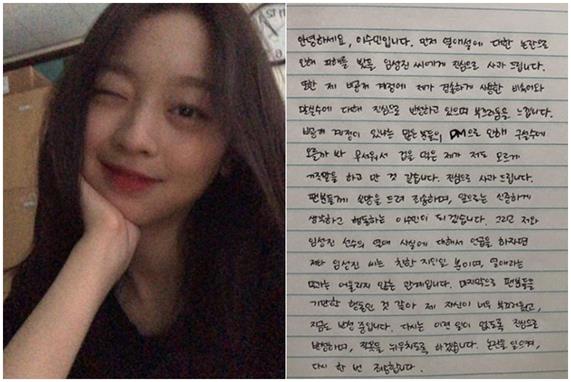 안녕하세요, 이수민입니다. 먼저 열애설에 대한 논란으로
인해 피해를 받은 임성진 씨에게 진심으로 사과 드립니다.
또한 제 비공개 계정에 제가 경솔하게 사용한 비속어와
말실수에 대해 진심으로 반성하고 있으며 부끄러움을 느낍니다.
비공개 계정이 있냐는 많은 분들의 DM으로 인해 구설수에
오를까 봐 무서워서 겁을 먹은 제가 저도 모르게
거짓말을 하고 만 것 같습니다. 진심으로 사과 드립니다.
팬분들께 실망을 드려 죄송하며, 앞으로는 신중하게
생각하고 행동하는 이수민이 되겠습니다. 그리고 저와
임성진 선수의 열애 사실에 대해서 언급을 하자면
저와 임성진 씨는 친한 지인일 뿐이며, 열애라는
말과는 어울리지 않는 관계입니다. 마지막으로 팬분들을
기만한 행동인 것 같아 제 자신이 너무 부끄러웠고,
지금도 반성 중입니다. 다시는 이런 일이 없도록 진심으로
반성하며, 잘못을 뉘우치도록 하겠습니다. 논란을 일으켜,
다시 한 번 죄송합니다.